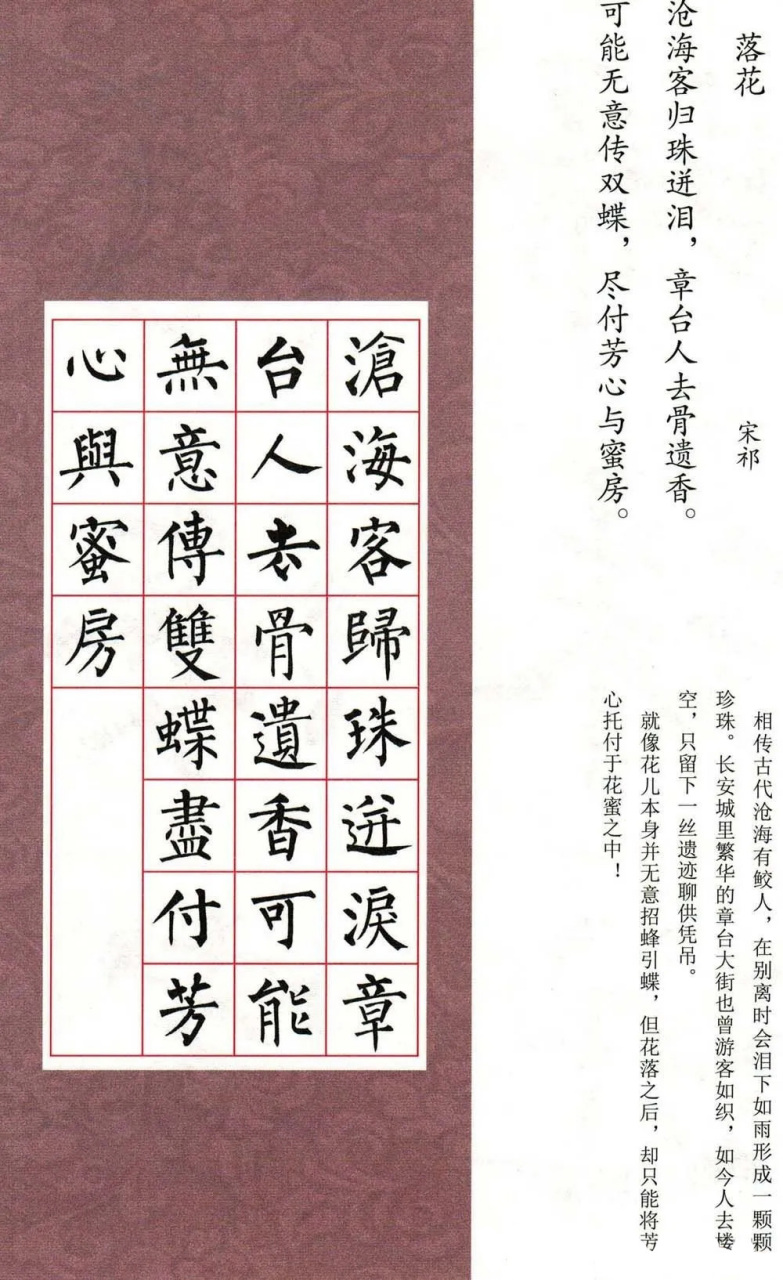 落花
宋祁
沧海客归珠迸泪，章台人去骨遗香。
可能无意传双蝶，尽付芳心与蜜房。
相传古代沧海有鲛人，在别离时会泪下如雨形成一颗颗
珍珠。长安城里繁华的章台大街也曾游客如织，如今人去楼
空，只留下一丝遗迹聊供凭吊。
就像花儿本身并无意招蜂引蝶，但花落之后，却只能将芳
心托付于花蜜之中！
滄海客歸珠迸淚章
台人去骨遺香可能
無意傳雙蝶盡付芳
心與蜜房